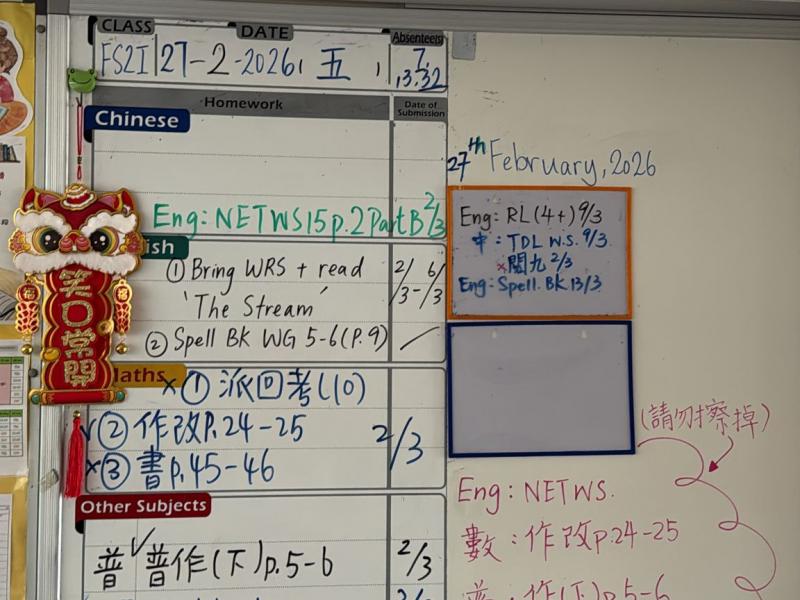 CLASS DATE Absentee(s)
FS2I 27-2-2026, 五, 7, 13.32
Homework Date of Submission
Chinese
Eng: NETWS15 p.2 Part B 2/3
① Bring WRS + read 2/3 - 6/3
'The Stream'
② Spell BK WG 5-6 (P.9)
Maths
× ① 派回考(10)
✓② 作改P.24-25 2/3
×③ 書p.45-46
Other Subjects
普 ✓普作(下)p.5-6 2/3
笑口常開
27th February, 2026
Eng: RL (4+) 9/3
中: TDL W.S. 9/3
×閱九 2/3
Eng: Spell. BK 13/3
(請勿擦掉)
Eng: NETWS.
數: 作改p.24-25
普: 作(下)p.5-6